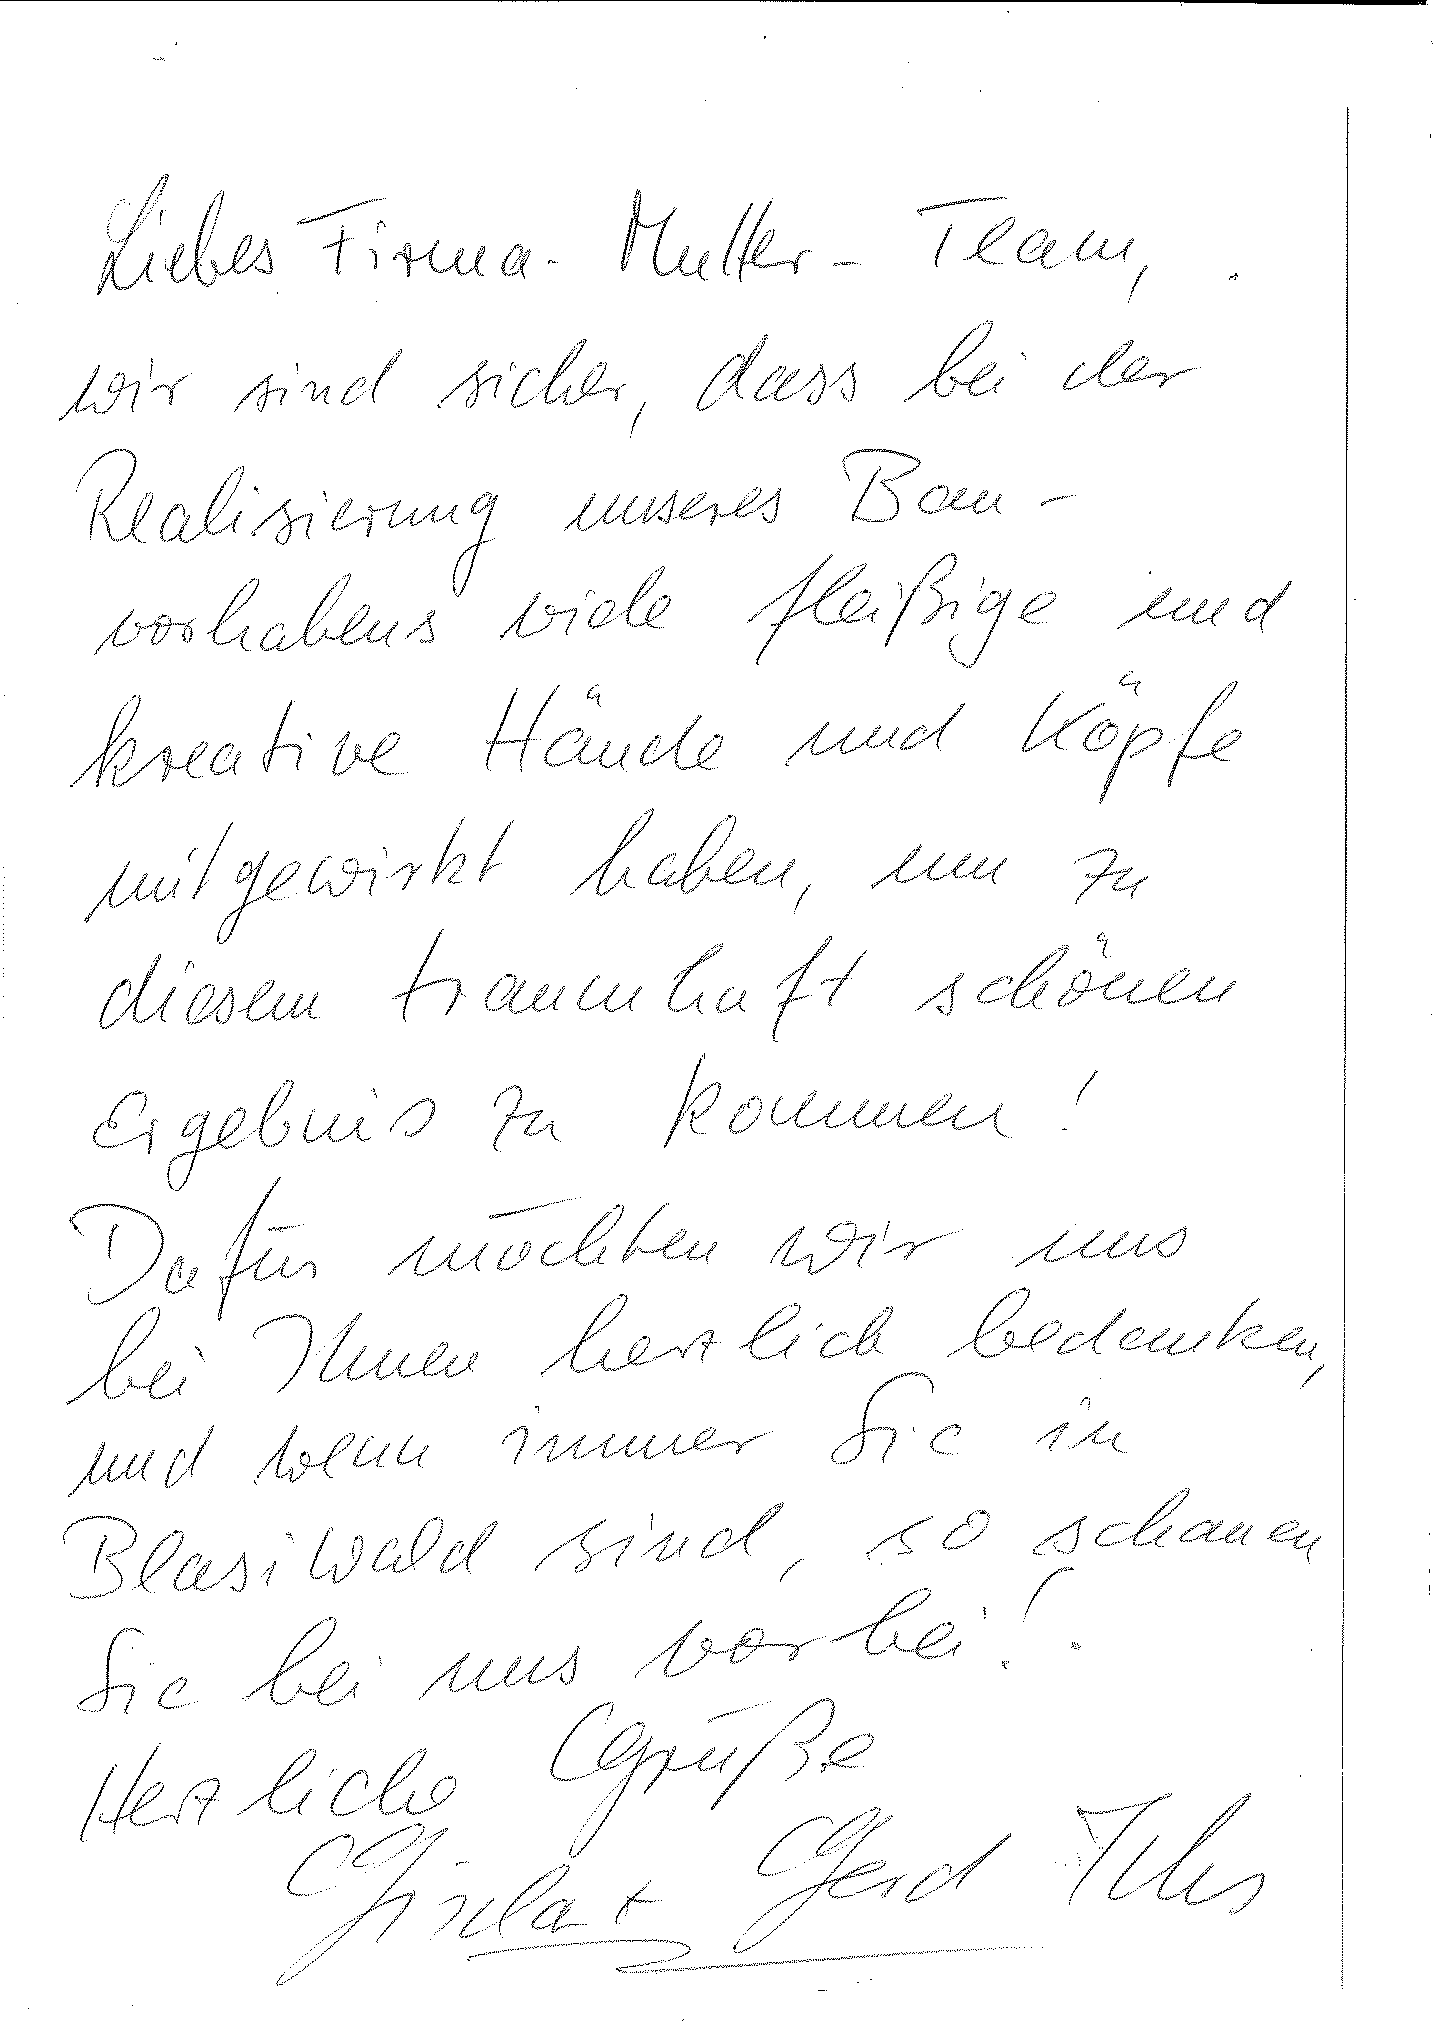 Liebes Firma-Mutter-Team,
wir sind sicher, dass bei der
Realisierung unseres Bau-
vorhabens viele fleißige und
kreative Hände und Köpfe
mitgewirkt haben, um zu
diesem traumhaft schönen
Ergebnis zu kommen!
Dafür möchten wir uns
bei Ihnen herzlich bedanken,
und wenn immer Sie in
Blasiwald sind, so schauen
Sie bei uns vorbei!
Herzliche Grüße
Gisela + Gerd